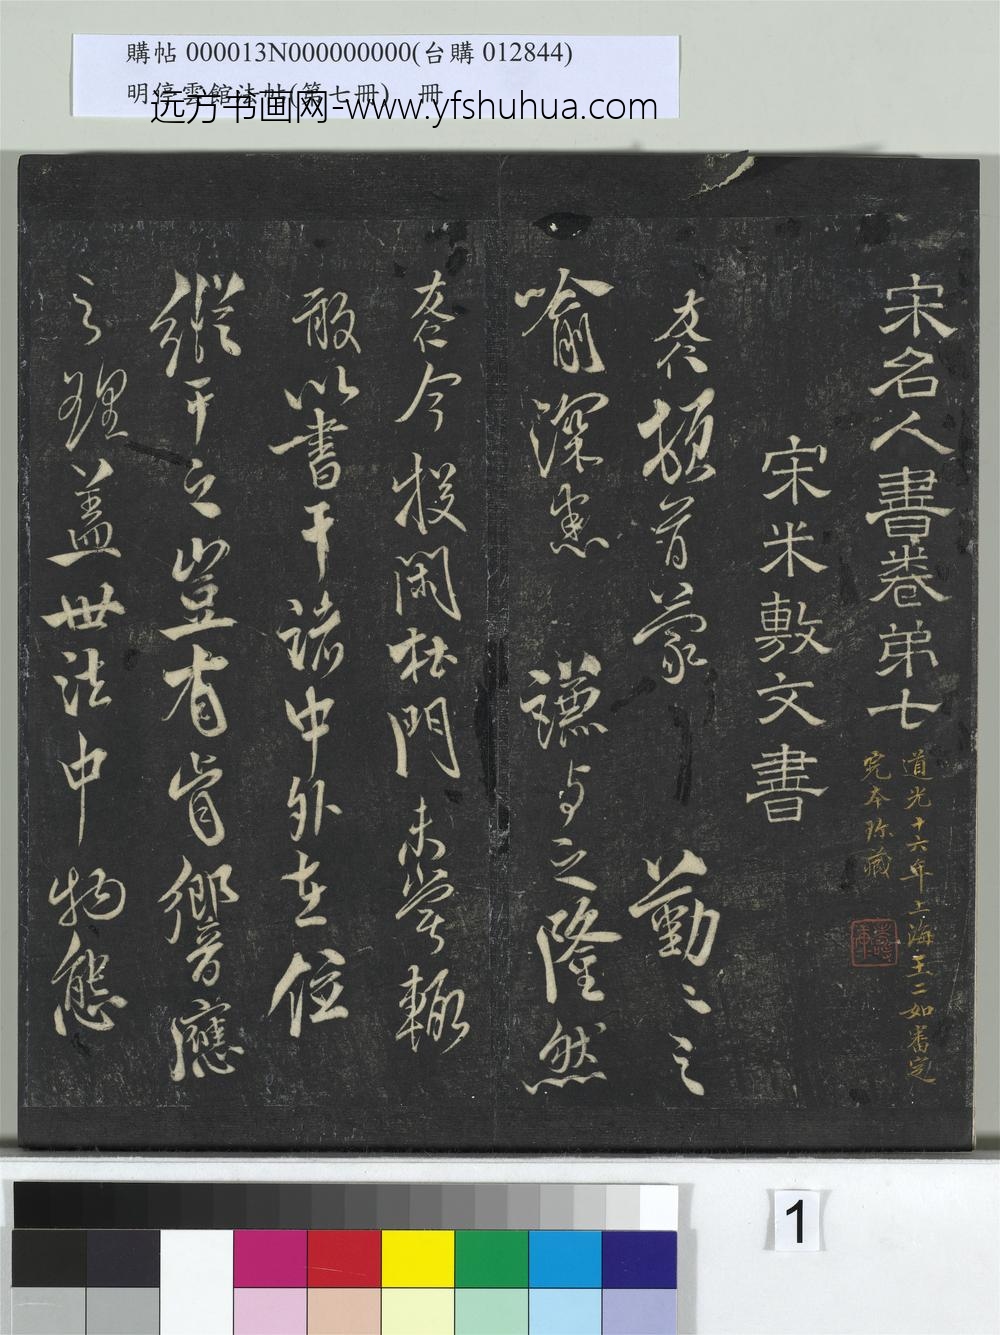 購帖 000013N000000000(台購 012844)
明停雲館法帖(第七冊) 冊
远方书画网-www.yfshuhua.com
宋名人書卷弟七
道光十六年上海王二如審定
完本珍藏
宋米敷文書
友仁頓首蒙 勤〻之
喻深悉 謙与之隆然
友仁今投閑杜門未嘗輒
敢以書干諸中外在位
縱干之豈有肯嚮應
之理蓋世法中物態
1